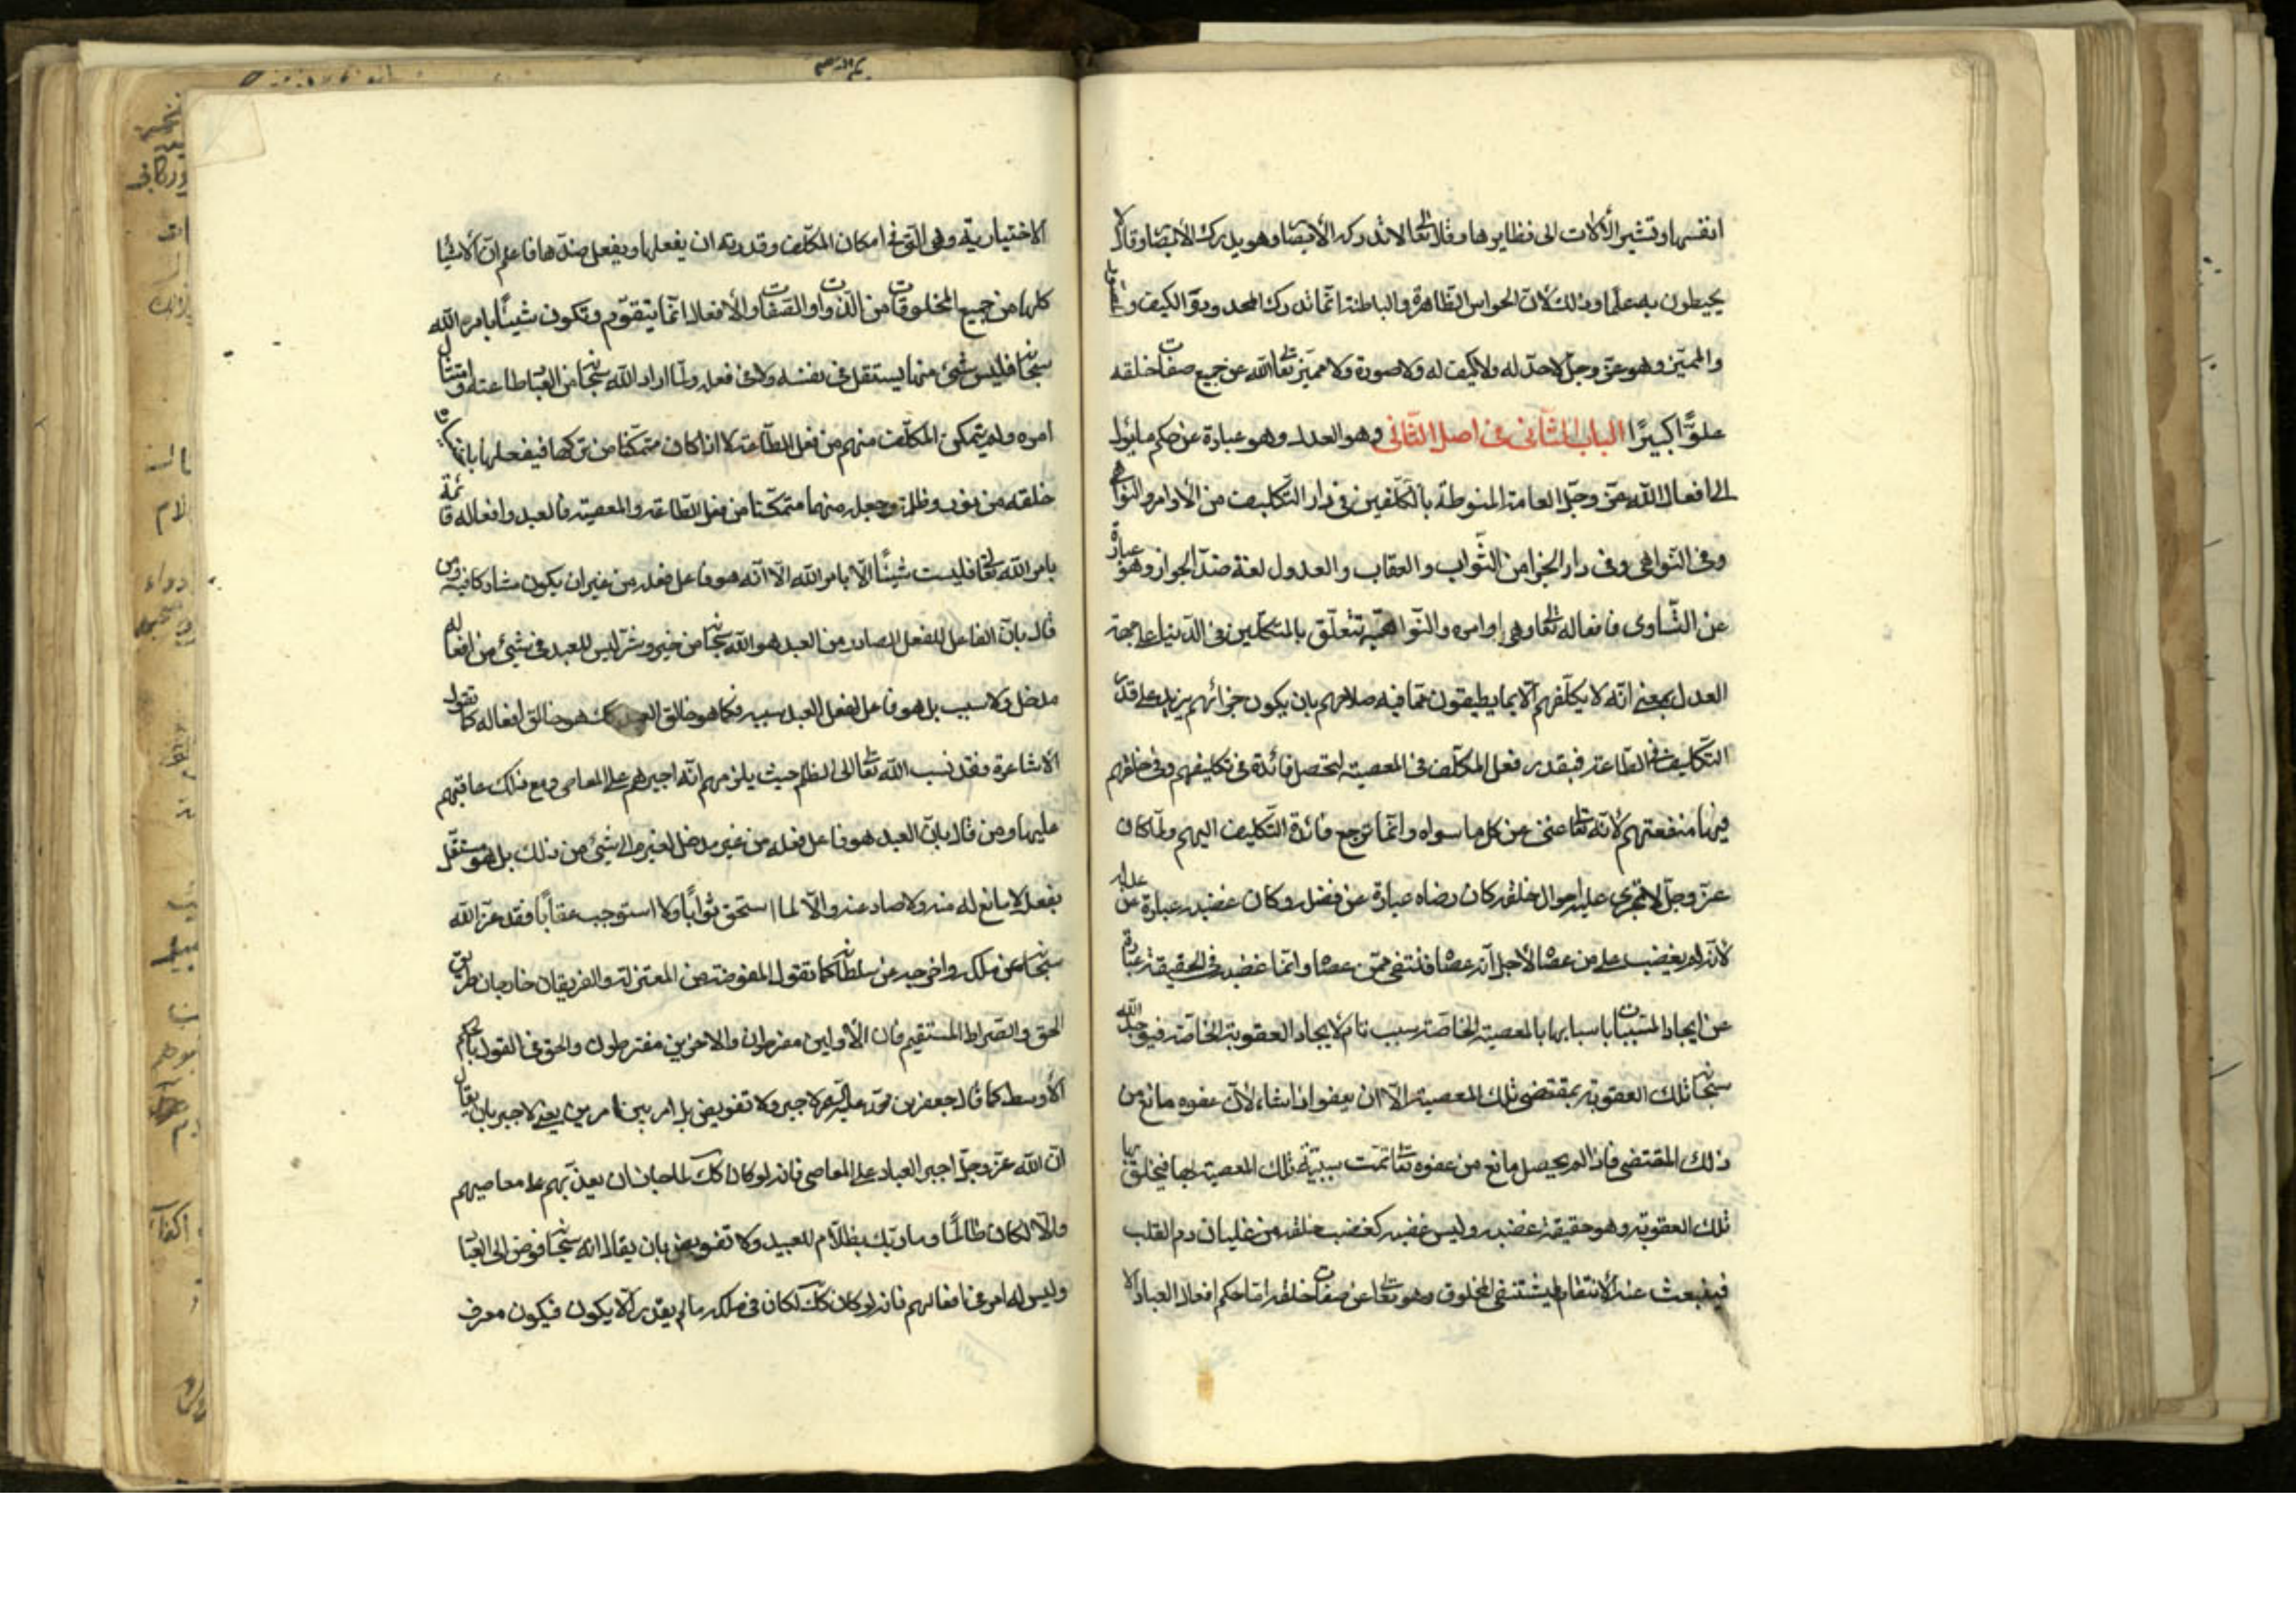 انفسها وتشير الألات الى نظايرها وقال تعا لا تدركه الأبصا وهو يدرك الأبصا وقال لا
يحيطون به علما وذلك لان الحواس الظاهرة والباطنة انما تدرك المحدود وذو الكيف والصورة
والمميز وهو عز وجل لا حد له ولا كيف له ولا صورة ولا مميز تعا الله عن جميع صفات خلقه
علوًّا كبيرًا الباب الثانى فى اصل الثانى وهو العدل وهو عبارة عن حكم ما يؤل
الى افعال الله عز وجل العامة المنوطة بالمكلفين فى دار التكليف من الأوامر والنواهى
وفى النواهى وفى دار الجزا من الثواب والعقاب والعدول لغة ضد الجور وهو عبارة
عن التساوى فافعاله تعا وهى اوامره والنواهيه تتعلق بالمتكلمين فى الدنيا على جهة
العدل بمعنى انه لا يكلفهم الا بما يطيقون مما فيه صلاحهم بان يكون جزائهم يزيد على قدر
التكليف فى الطاعة فبقدر فعل المكلف فى المعصية لتحصل فائدة فى تكليفهم وفى خلقهم
فيها منفعتهم لأنه تعا غنى عن كل ما سواه وانما ترجع فائدة التكليف اليهم ولما كان
عز وجل لا تجرى عليه احوال خلقه كان رضاه عبارة عن فضله وكان غضبه عبارة عن عدله
لأنه لم يغضب على من عصا لأجل انه عصا فتشفى ممن عصا وانما غضبه فى الحقيقة عبارة
عن ايجاد المسببات باسبابها بالمعصية الخاصة سبب تام لايجاد العقوبة الخاصة فيوجد الله
سبحانه تلك العقوبة بمقتضى تلك المعصية الا ان يعفو اذا شاء لأن عفوه مانع من
ذلك المقتضى فاذا لم يحصل مانع من عفوه تعا تمت سببية تلك المعصية لها فيخلق بها
تلك العقوبة وهو حقيقة غضبه وليس غضبه كغضب خلقه من غليان دم القلب
فينبعث عنه الأنتقام ليشتفى المخلوق وهو تعا عن صفات خلقه اما حكم افعال العباد الا
الاختيارية وهى التى فى امكان المكلف وقدرته ان يفعلها ويفعل ضدها فاعلم ان الأشيا
كلها من جميع المخلوقات من الذوات والصفات والأفعال انما يتقوم وتكون شيئًا بامر الله
سبحانه فليس شئ منها يستقل فى نفسه ولا فى فعله ولما اراد الله سبحانه من العباد طاعته وامتثال
امره ولم يتمكن المكلف منهم من فعل الطاعة الا اذا كان متمكنا من تركها فيفعلها باختيا
خلقه من نور وظلمة وجعله منهما متمكنا من فعل الطاعة والمعصية فالعبد وافعاله قائمة
بامر الله تعا فليست شيئًا الا بامر الله الا انه هو فاعل فعله من غير ان يكون مشاركا فيه ومن
قال بان الفاعل للفعل الصادر من العبد هو الله سبحانه من خير وشر ليس للعبد فى شئ من افعاله
مدخل ولا سبب بل هو فاعل لفعل العبد سببه فكما هو خالق العبد كك هو خالق افعاله كما تقول
الاشاعرة فقد نسب الله تعا الى الظلم حيث يلزمهم انه اجبرهم على المعاصى ومع ذلك عاقبهم
عليها ومن قال بان العبد هو فاعل فعله من غير مدخل لغيره الى شئ من ذلك بل هو مستقل
بفعله لا مانع له منه ولا صاد عنه والا لما استحق ثوابًا ولا استوجب عقابًا فقد عزل الله
سبحانه عن ملكه واخرجه عن سلطانه كما تقول المفوضة من المعتزلة والفريقان خارجان طريق
الحق والصراط المستقيم فان الأولين مفرطون والاخرين مفترطون والحق فى القول بالحكم
الأوسط كما قال جعفر بن محمد عليه السلم لا جبر ولا تفويض بل امر بين امرين يعنى لا جبر بان يقال
ان الله عز وجل اجبر العباد على المعاصى فانه لو كان كك لما جاز ان يعذبهم على معاصيهم
والا لكان ظالمًا وما ربك بظلام للعبيد ولا تفويض بان يقال انه سبحانه فوض الى العبا
وليس له امر فى افعالهم فانه لو كان كك لكان فى ملكه ما لم يقدر الا يكون فيكون معرف